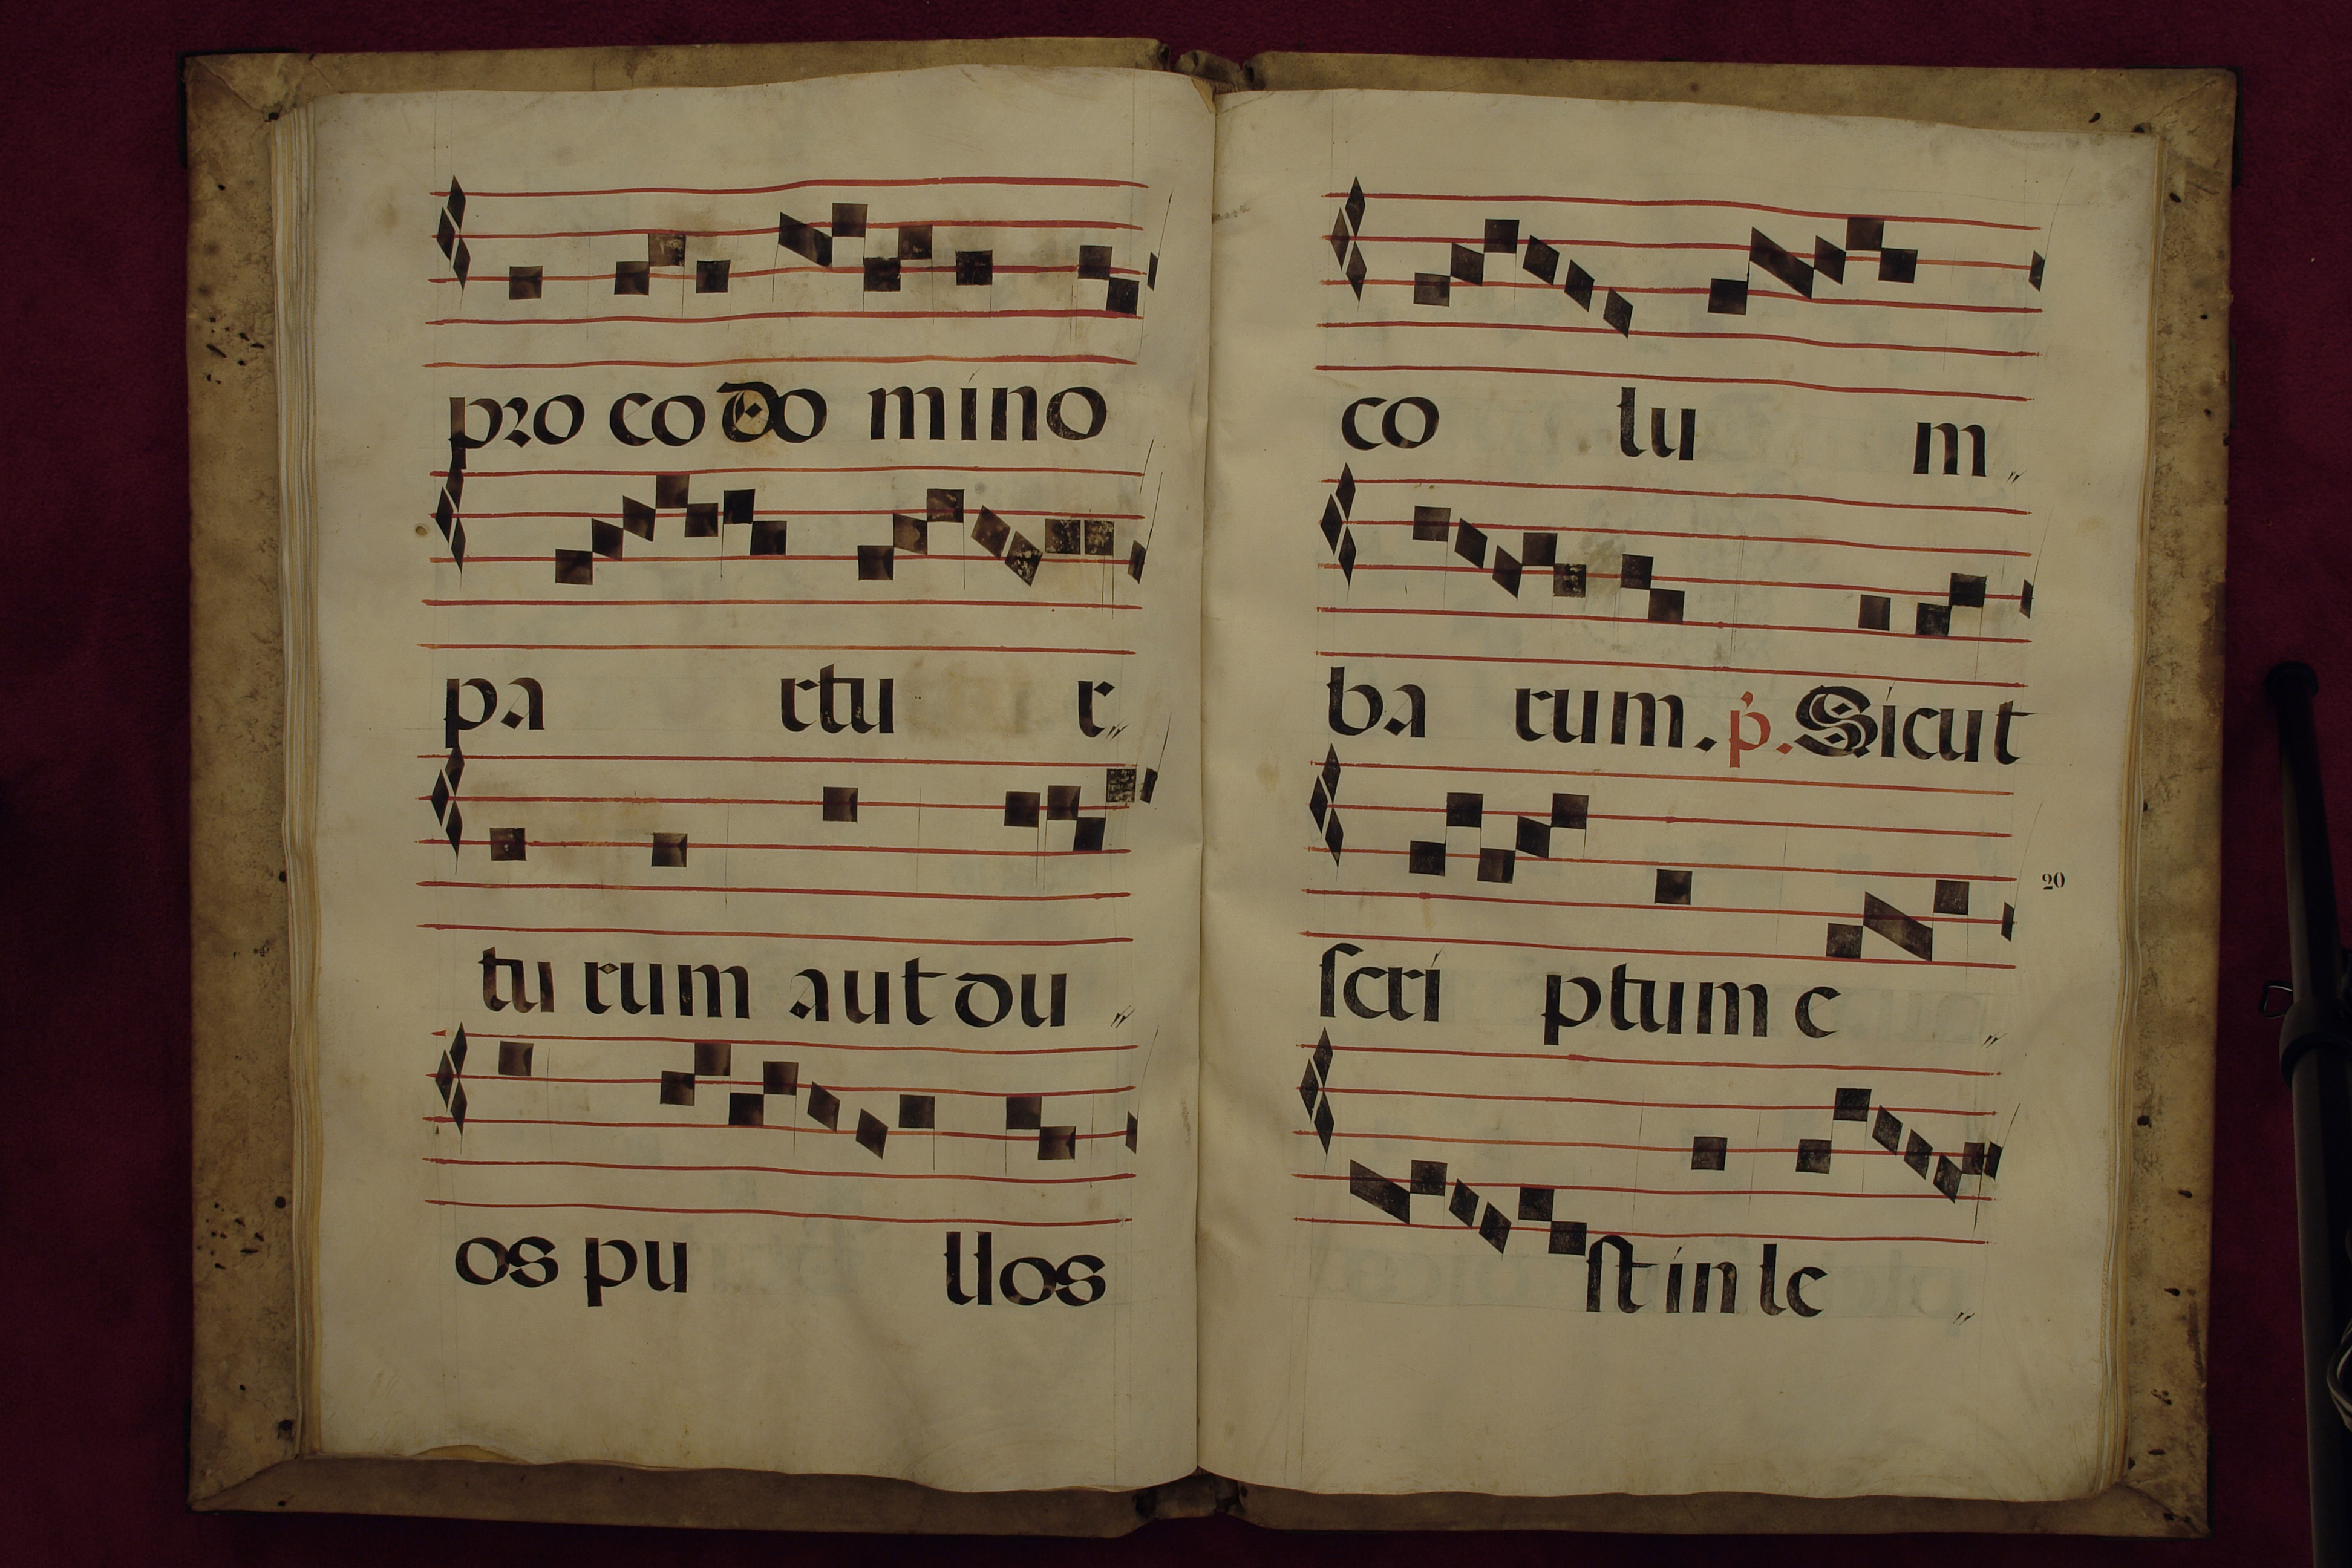 pro eo do mino
pa rtu r
tu rum aut du
os pu llos
co lu m
ba rum. p. Sicut
20
scri ptum e
st in le